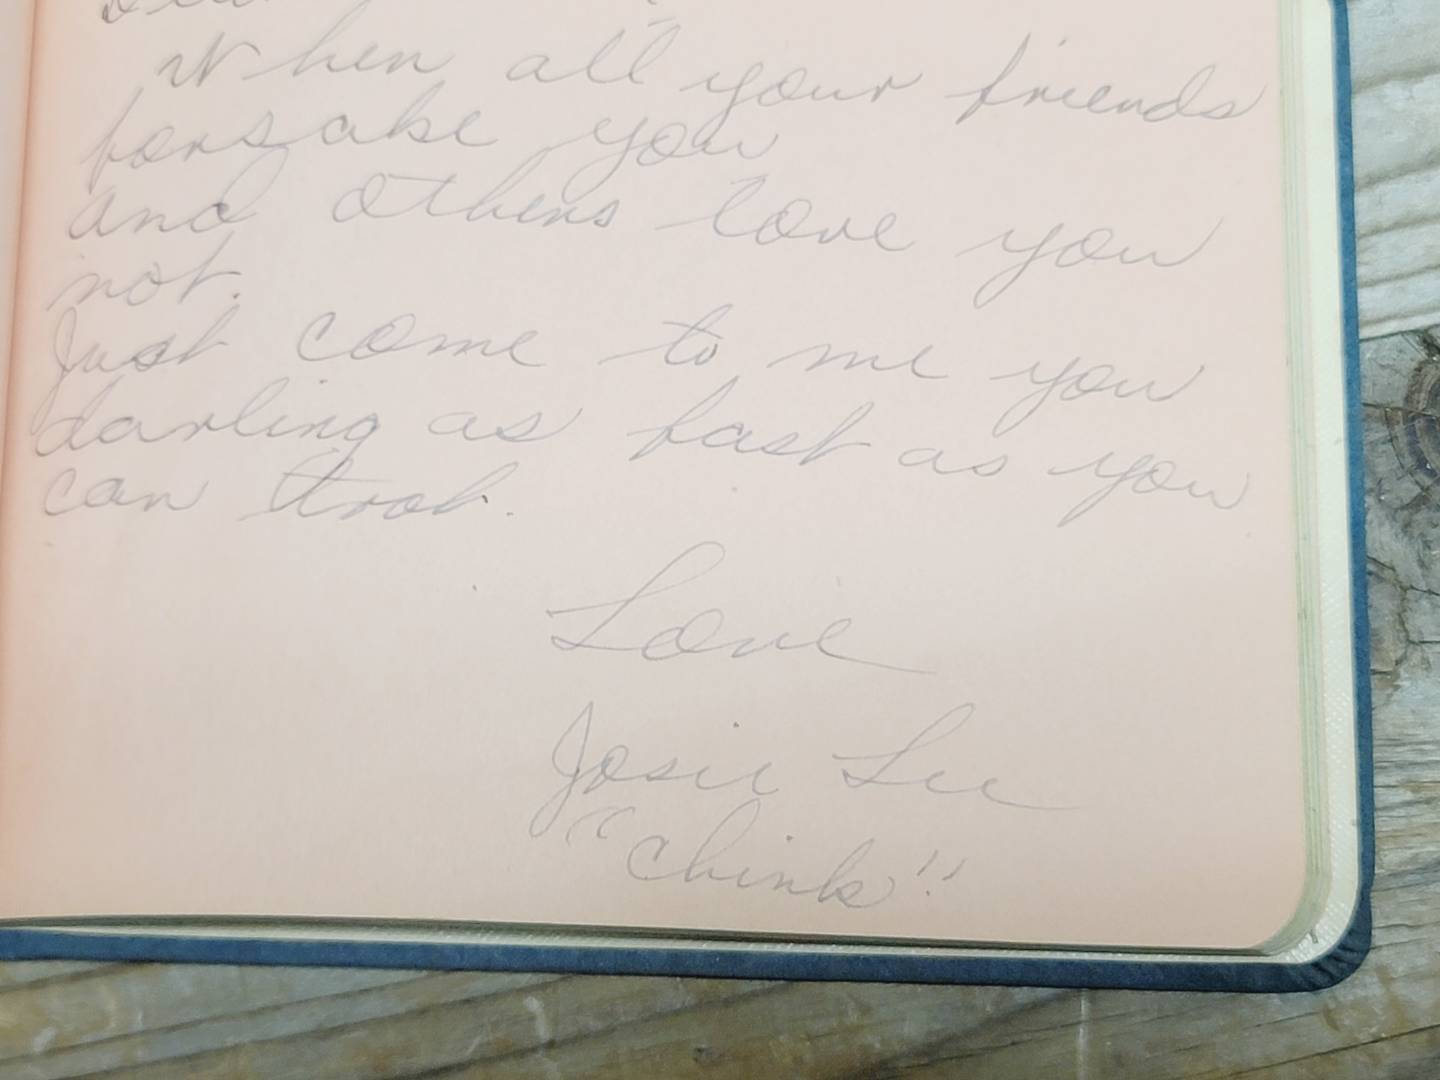 When all your friends
forsake you
and others love you
not.
Just come to me you
darling as fast as you
can trot.
Love
Josie Lee
"Chink"